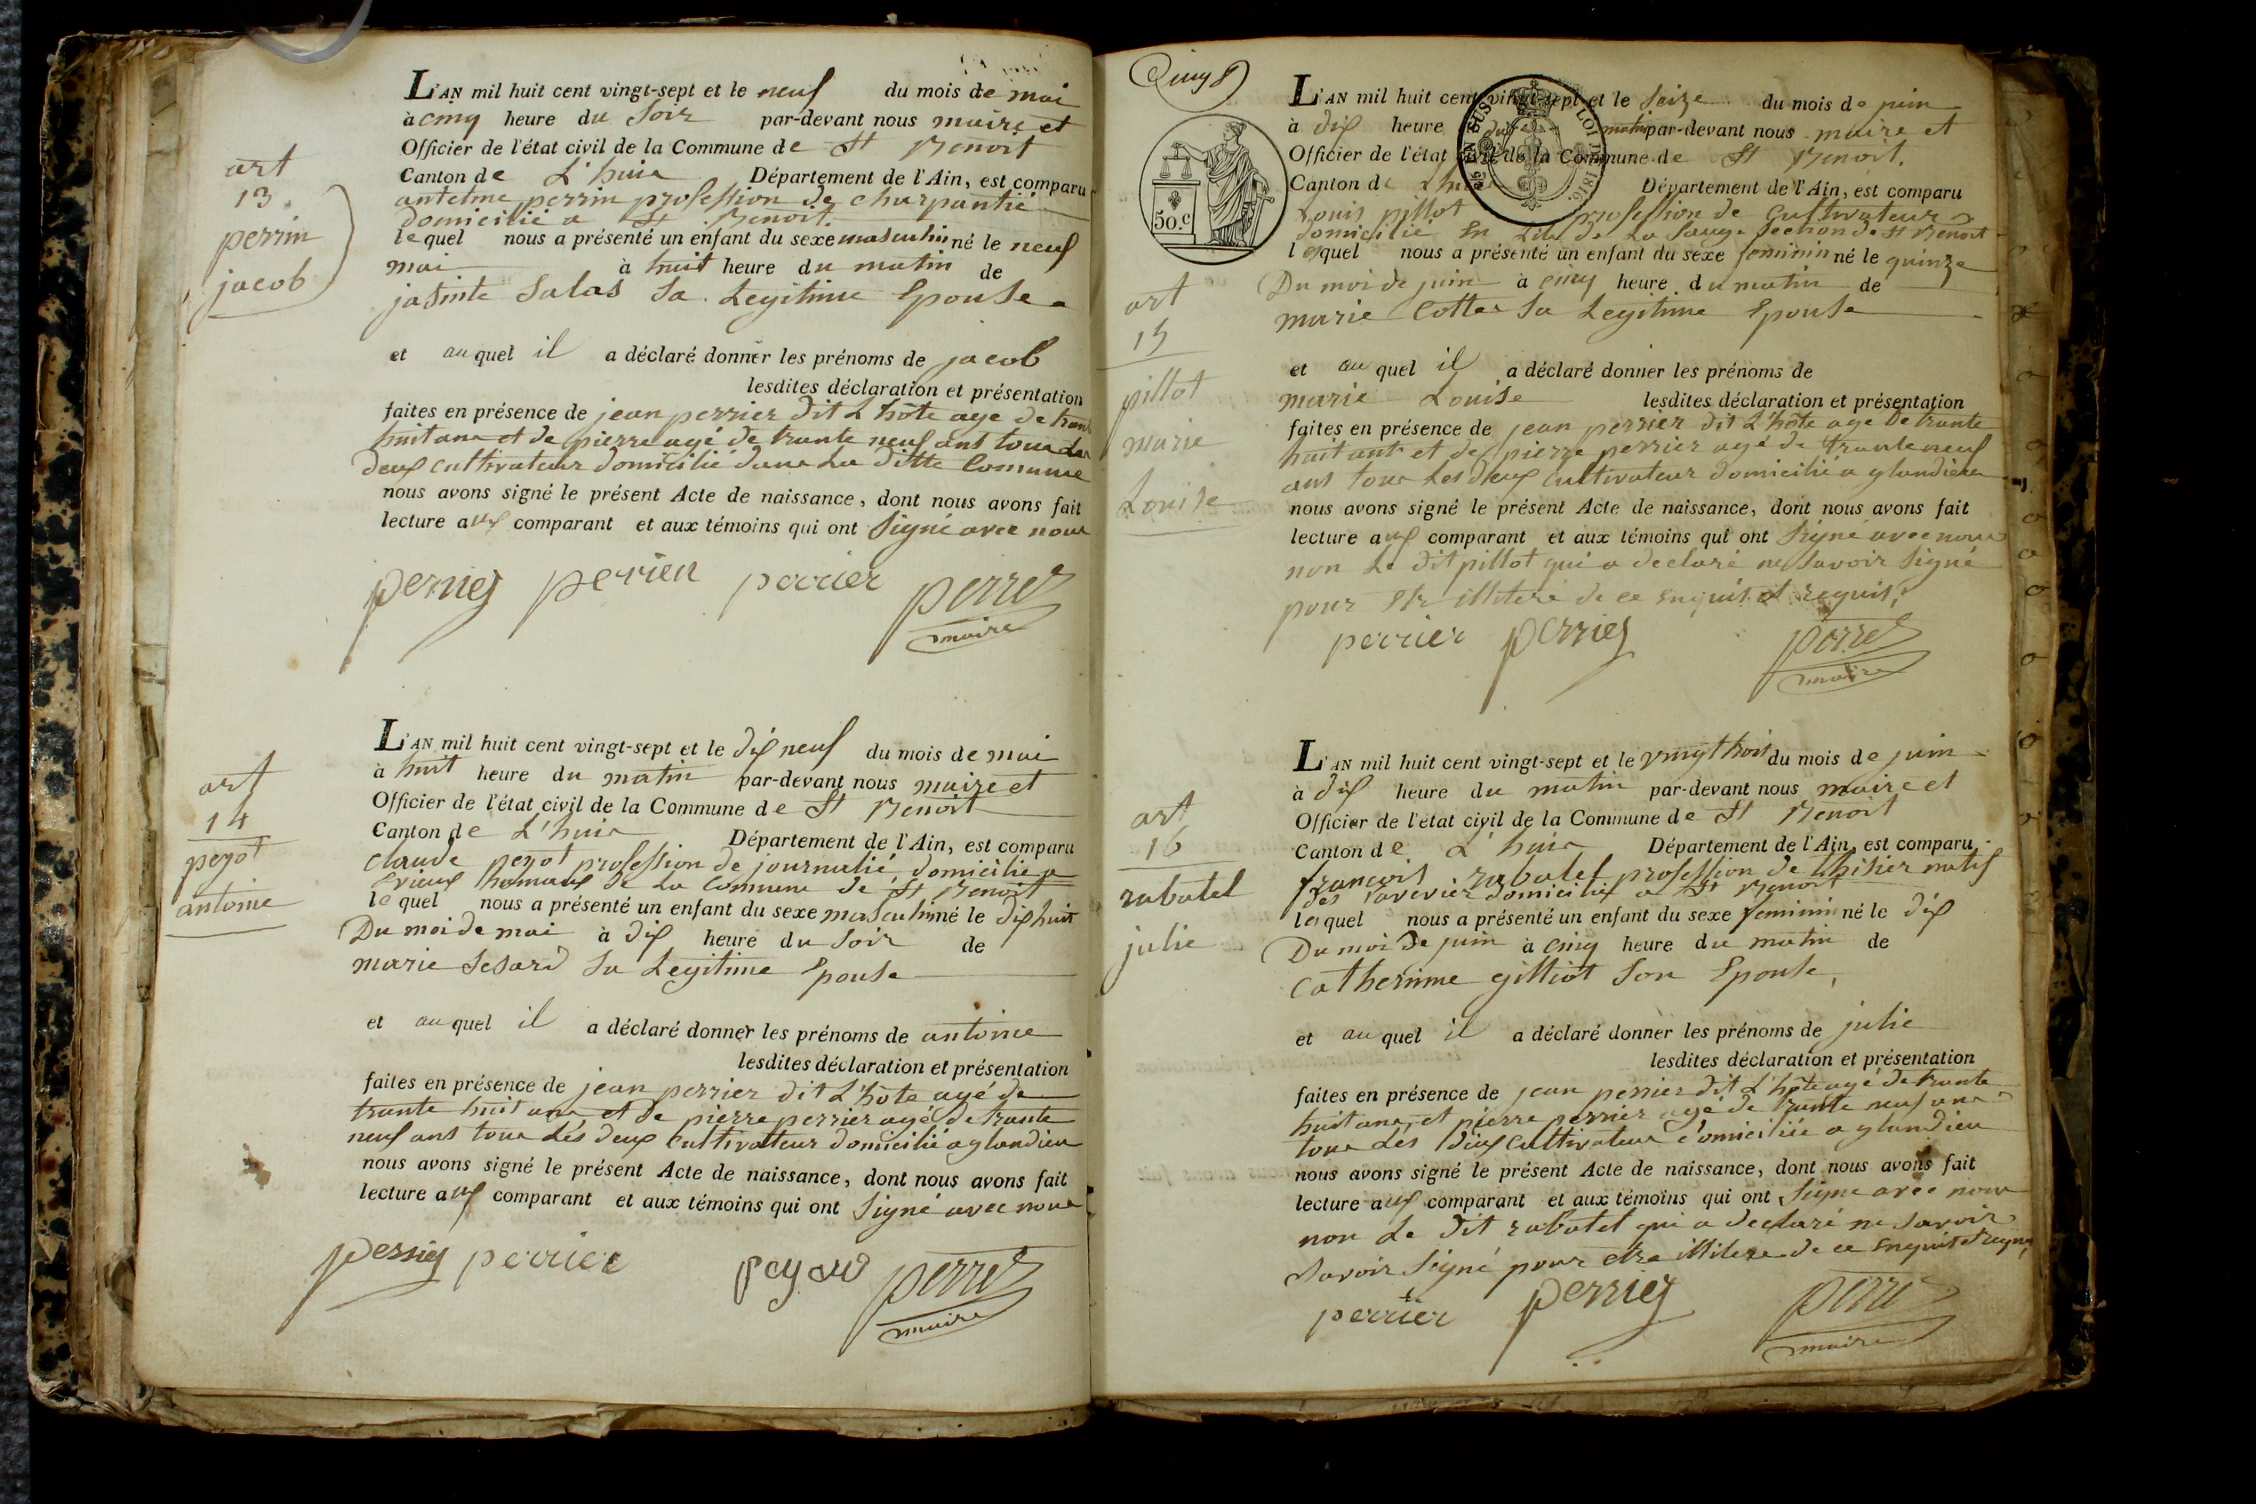 art
13.
perrin
jacob
L'AN mil huit cent vingt-sept et le neuf du mois de mai
à cinq heure du soir par-devant nous maire et
Officier de l'état civil de la Commune de St Benoit
Canton de L'huis Département de l'Ain, est comparu
antelme perrin profession de charpantié
domicilié a St Benoit
lequel nous a présenté un enfant du sexe masculin né le neuf
mai à huit heure du matin de
jasinte Salas Sa Legitime Epouse
et auquel il a déclaré donner les prénoms de jacob
lesdites déclaration et présentation
faites en présence de jean perrier dit L'hôte age de trante
huit ans et de pierre agé de trante neuf ans tous Les
deux cultivateur domicilié dans La ditte Commune
nous avons signé le présent Acte de naissance, dont nous avons fait
lecture aux comparant et aux témoins qui ont Signé avec nous
perrier perrien perrier perret
maire
art
14
peyot
antoine
L'AN mil huit cent vingt-sept et le dix neuf du mois de mai
à huit heure du matin par-devant nous maire et
Officier de l'état civil de la Commune de St Benoit
Canton de L'huis Département de l'Ain, est comparu
Claude peyot profession de journalié, domicilié a
de La Commune de St Benoit
lequel nous a présenté un enfant du sexe masculin né le dix huit
Du moi de mai à dix heure du Soir de
marie Sesard Sa Legitime Epouse
et auquel il a déclaré donner les prénoms de antoine
lesdites déclaration et présentation
faites en présence de jean perrier dit L'hôte agé de
trante huit ans et de pierre perrier agé de trante
neuf ans tous Lés deux Cultivateur domicilié a glandieu
nous avons signé le présent Acte de naissance, dont nous avons fait
lecture aux comparant et aux témoins qui ont Signé avec nous
perrier perrier perret
maire
50.c
art
15
pillot
marie
Louise
L'AN mil huit cent vingt-sept et le Seize du mois de juin
à dix heure du matin par-devant nous maire et
Officier de l'état civil de la Commune de St Benoit.
Canton de Lhuis Département de l'Ain, est comparu
Louis pillot profession de Cultivateur
domicilié En L'ile de La Sauge Section de St Benoit
lequel nous a présenté un enfant du sexe feminin né le quinze
Du moi de juin à cinq heure du matin de
marie Cottas Sa Legitime Epouse
et auquel il a déclaré donner les prénoms de
marie Louise lesdites déclaration et présentation
faites en présence de jean perrier dit L'hôte age de trante
huit ant et de pierre perrier agé de trante neuf
ans tous Les deux Cultivateur domicilié a glandieu
nous avons signé le présent Acte de naissance, dont nous avons fait
lecture aux comparant et aux témoins qui ont Signé avec nous
non Le dit pillot qui a declaré ne Savoir Signé
pour Etr illiteré de ce Enquis et requis,
perrier perrier perret
maire
art
16
rabatel
julie
L'AN mil huit cent vingt-sept et le vingt trois du mois de juin
à dix heure du matin par-devant nous maire et
Officier de l'état civil de la Commune de St Benoit
Canton de L'huis Département de l'Ain, est comparu
françois rabatel profession de natif
des domicilié a St Benoit
lequel nous a présenté un enfant du sexe feminin né le dix
Du moi De juin à cinq heure du matin de
Catherinne gilliot Son Epouse,
et auquel il a déclaré donner les prénoms de julie
lesdites déclaration et présentation
faites en présence de jean perrier dit L'hôte agé de trante
huit ans et pierre perrier agé de trante neuf ans
tous Lés deux Cultivateur domicilié a glandieu
nous avons signé le présent Acte de naissance, dont nous avons fait
lecture aux comparant et aux témoins qui ont Signe avec nous
non Le Dit rabatel qui a declaré ne Savoir
Savoir Signé pour etre illitere de ce Enquis et requis,
perrier perrier perret
maire